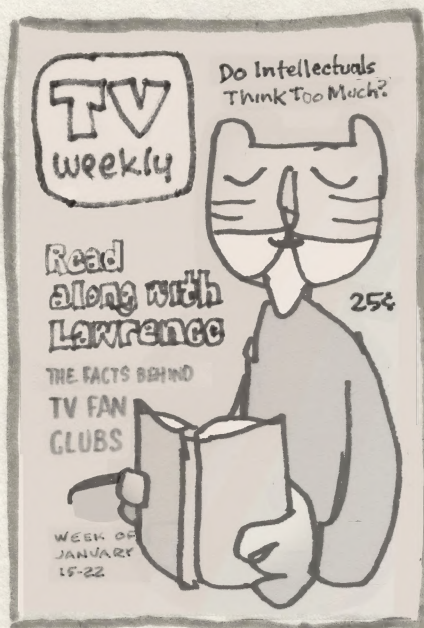 TV
weekly
Do Intellectuals
Think Too Much?
Read
along with
Lawrence
25¢
THE FACTS BEHIND
TV FAN
CLUBS
WEEK OF
JANUARY
15-22